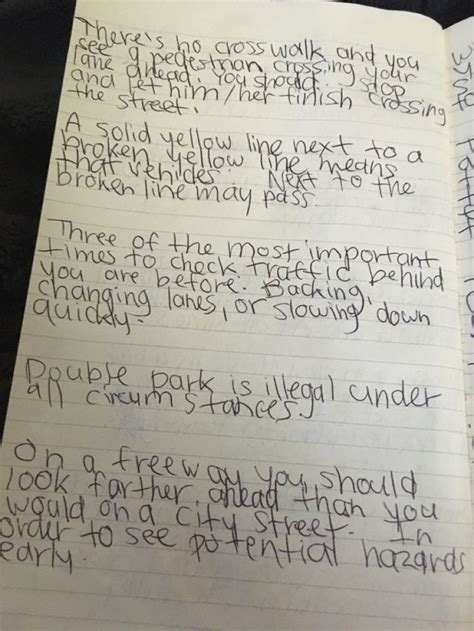 There's no crosswalk and you
see a pedestrian crossing your
lane ahead. You should. Stop
and let him/her finish crossing
the street.
A solid yellow line next to a
broken yellow line means
that vehicles. Next to the
broken line may pass
Three of the most important
times to check traffic behind
you are before. Backing,
changing lanes, or slowing down
quickly.
Double park is illegal under
all circumstances.
On a freeway you should
look farther ahead than you
would on a city street. In
order to see potential hazards
early.